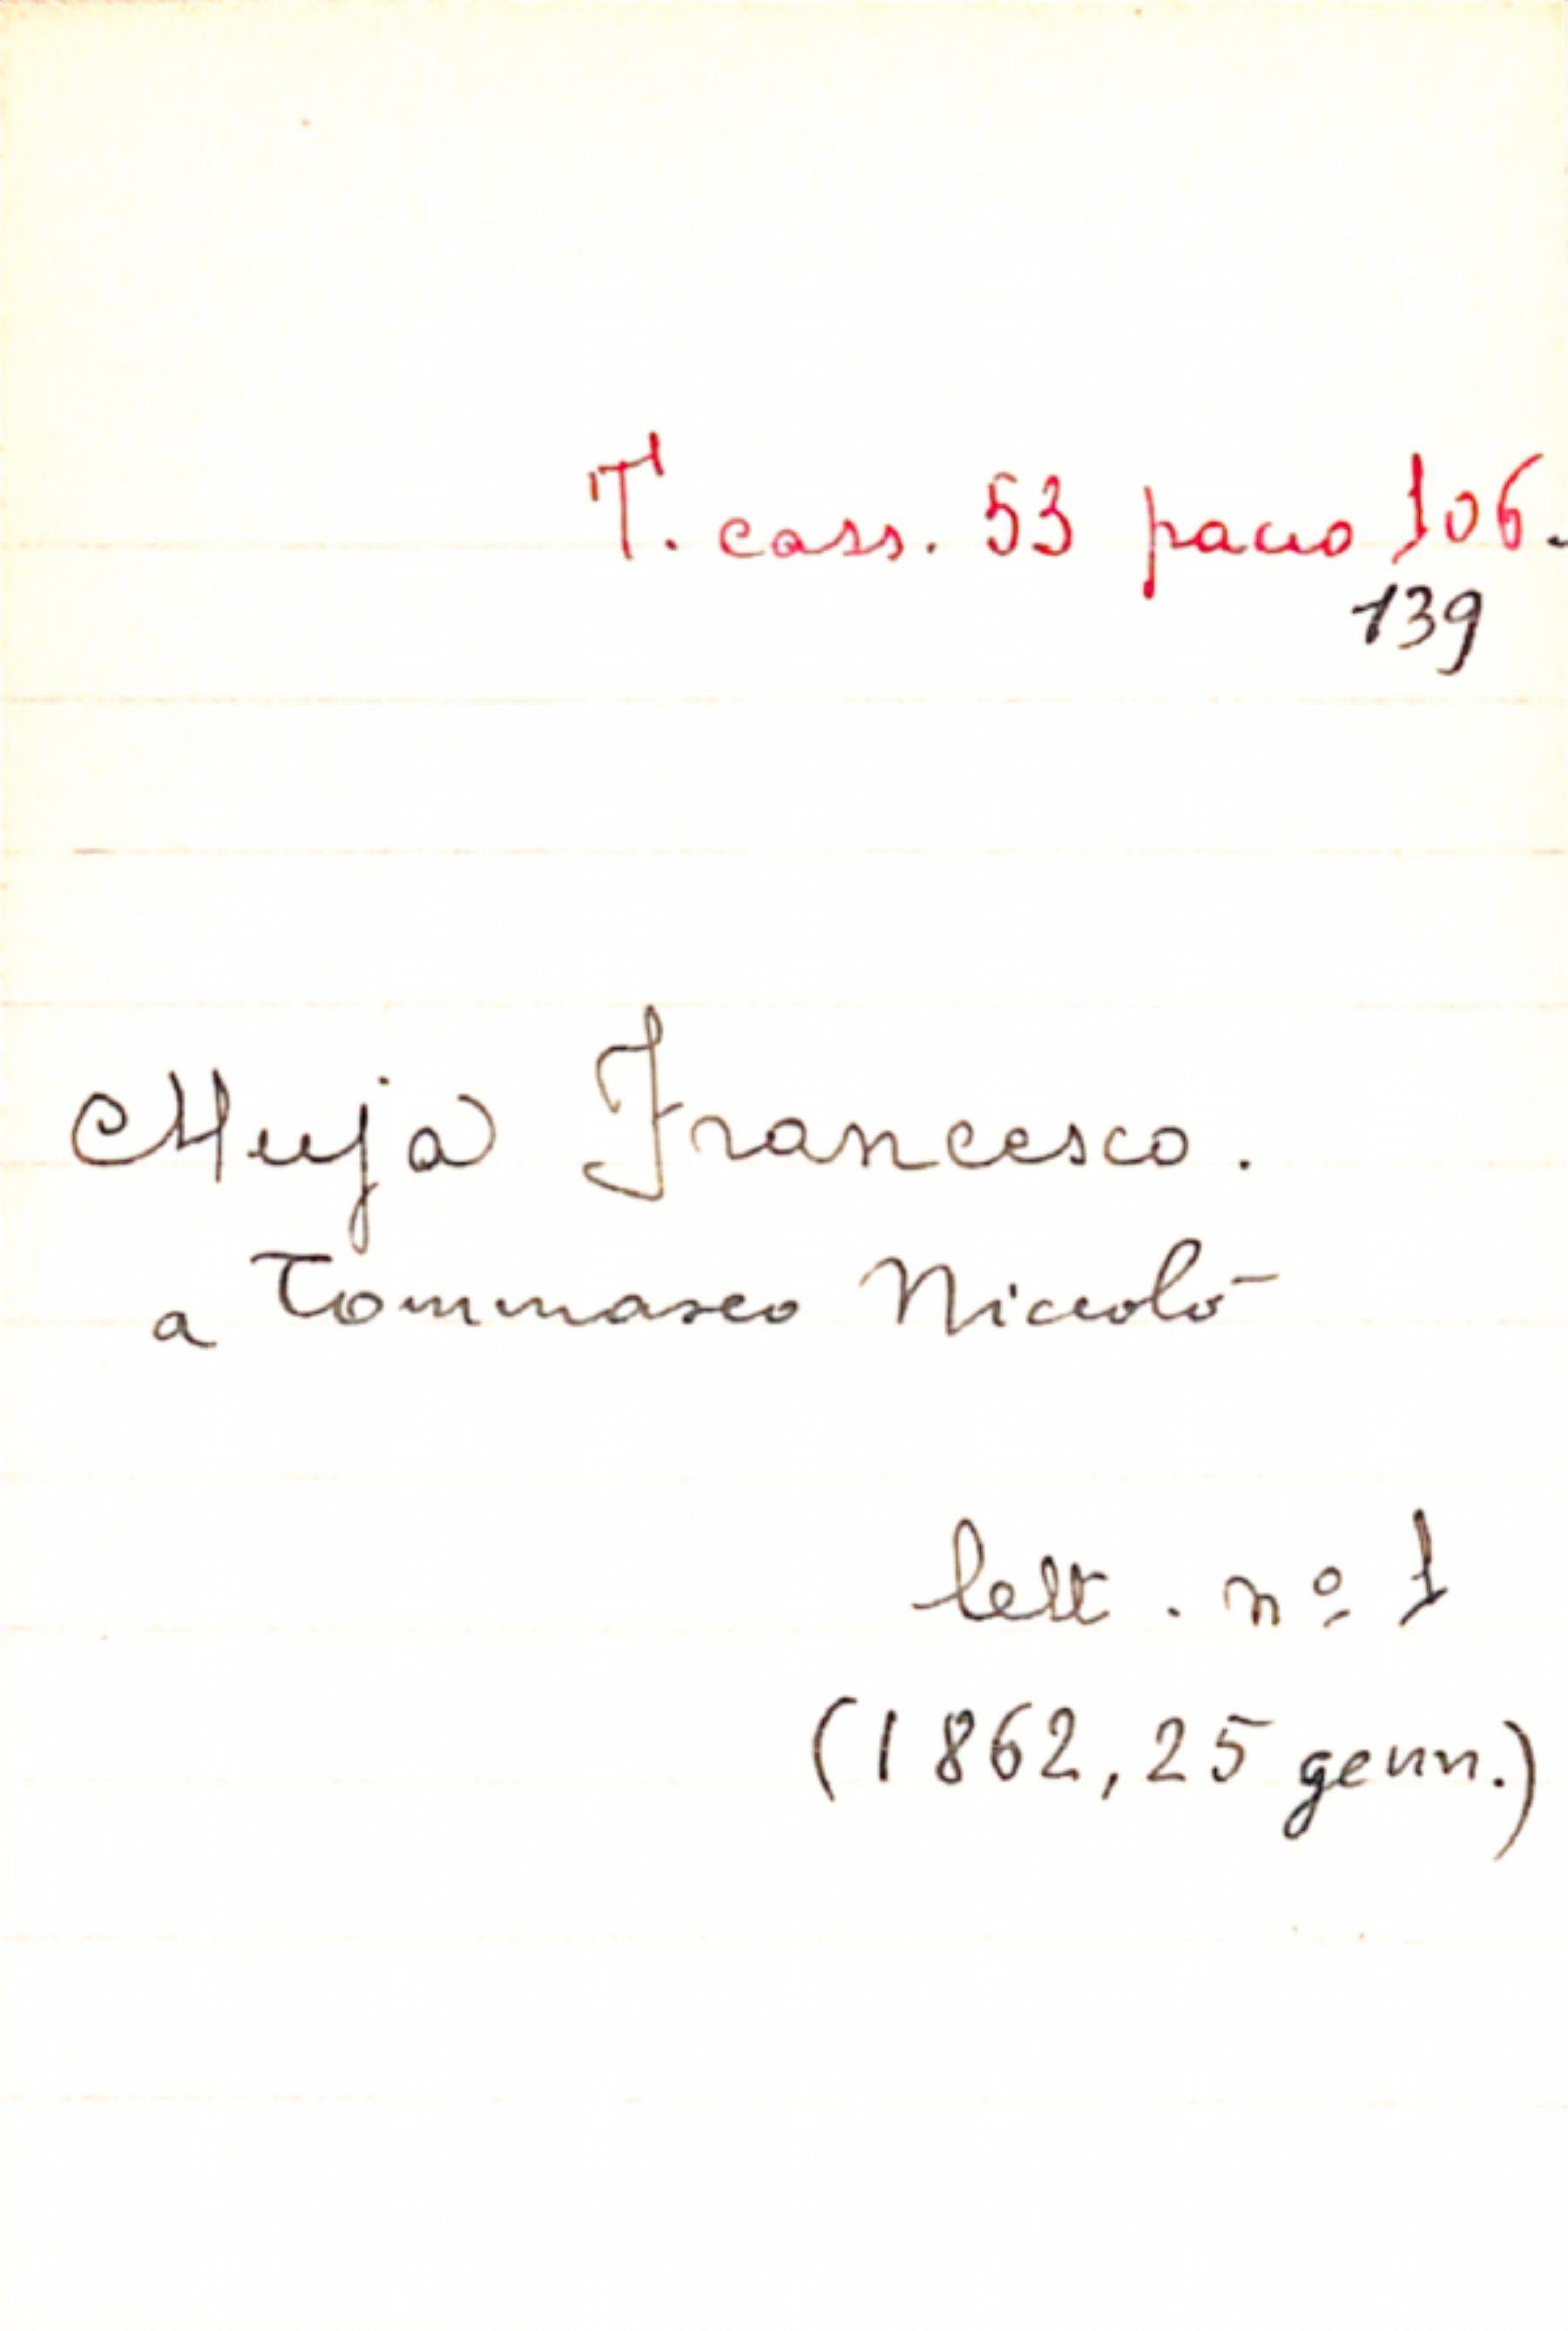 T. cass. 53 pacco 106.
139
Muja Francesco.
a Tommaseo Niccolò
lett. nº 1
(1862, 25 genn.)